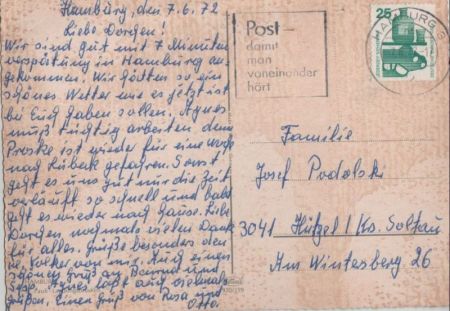 Hamburg, den 7.6.72
Liebe Dorgen!
Wir sind gut mit 7 Minuten
verspätung in Hamburg an-
gekommen! Wir hätten so ein
schönes Wetter wie es jetzt ist
bei Euch haben sollen. Agnes
muß tüchtig arbeiten denn
Proske ist wieder für eine Woche
nach Lübeck gefahren. Sonst
geht es uns gut nur die Zeit
verläuft so schnell und bald
geht es wieder nach Hause. Liebe
Dorgen nochmals vielen Dank
für alles. Grüße besonders den
Volker von mir. Auch einen
schönen Gruß an und
Agnes läßt auch vielmals
grüßen. Einen Gruß von Rosa und
Otto.
Post-
damit
man
voneinander
hört
25
HAMBURG
Familie
Josef Podolski
3041 Hützel / Ks. Soltau
Am Wintesberg 26